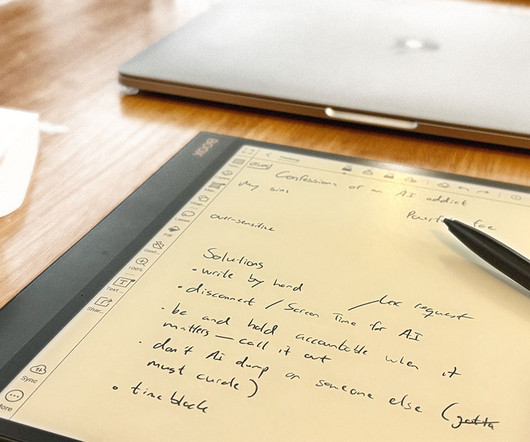 BOOX
Confessions of an AI addict
My sins
over-sensitive
Solutions
• write by hand
• disconnect / Screen Time for AI
• be and hold accountable when it
matters — call it out
• don't AI dump on someone else (gotta
must curate)
• time block
100%
Text
Shar...
Sync
More